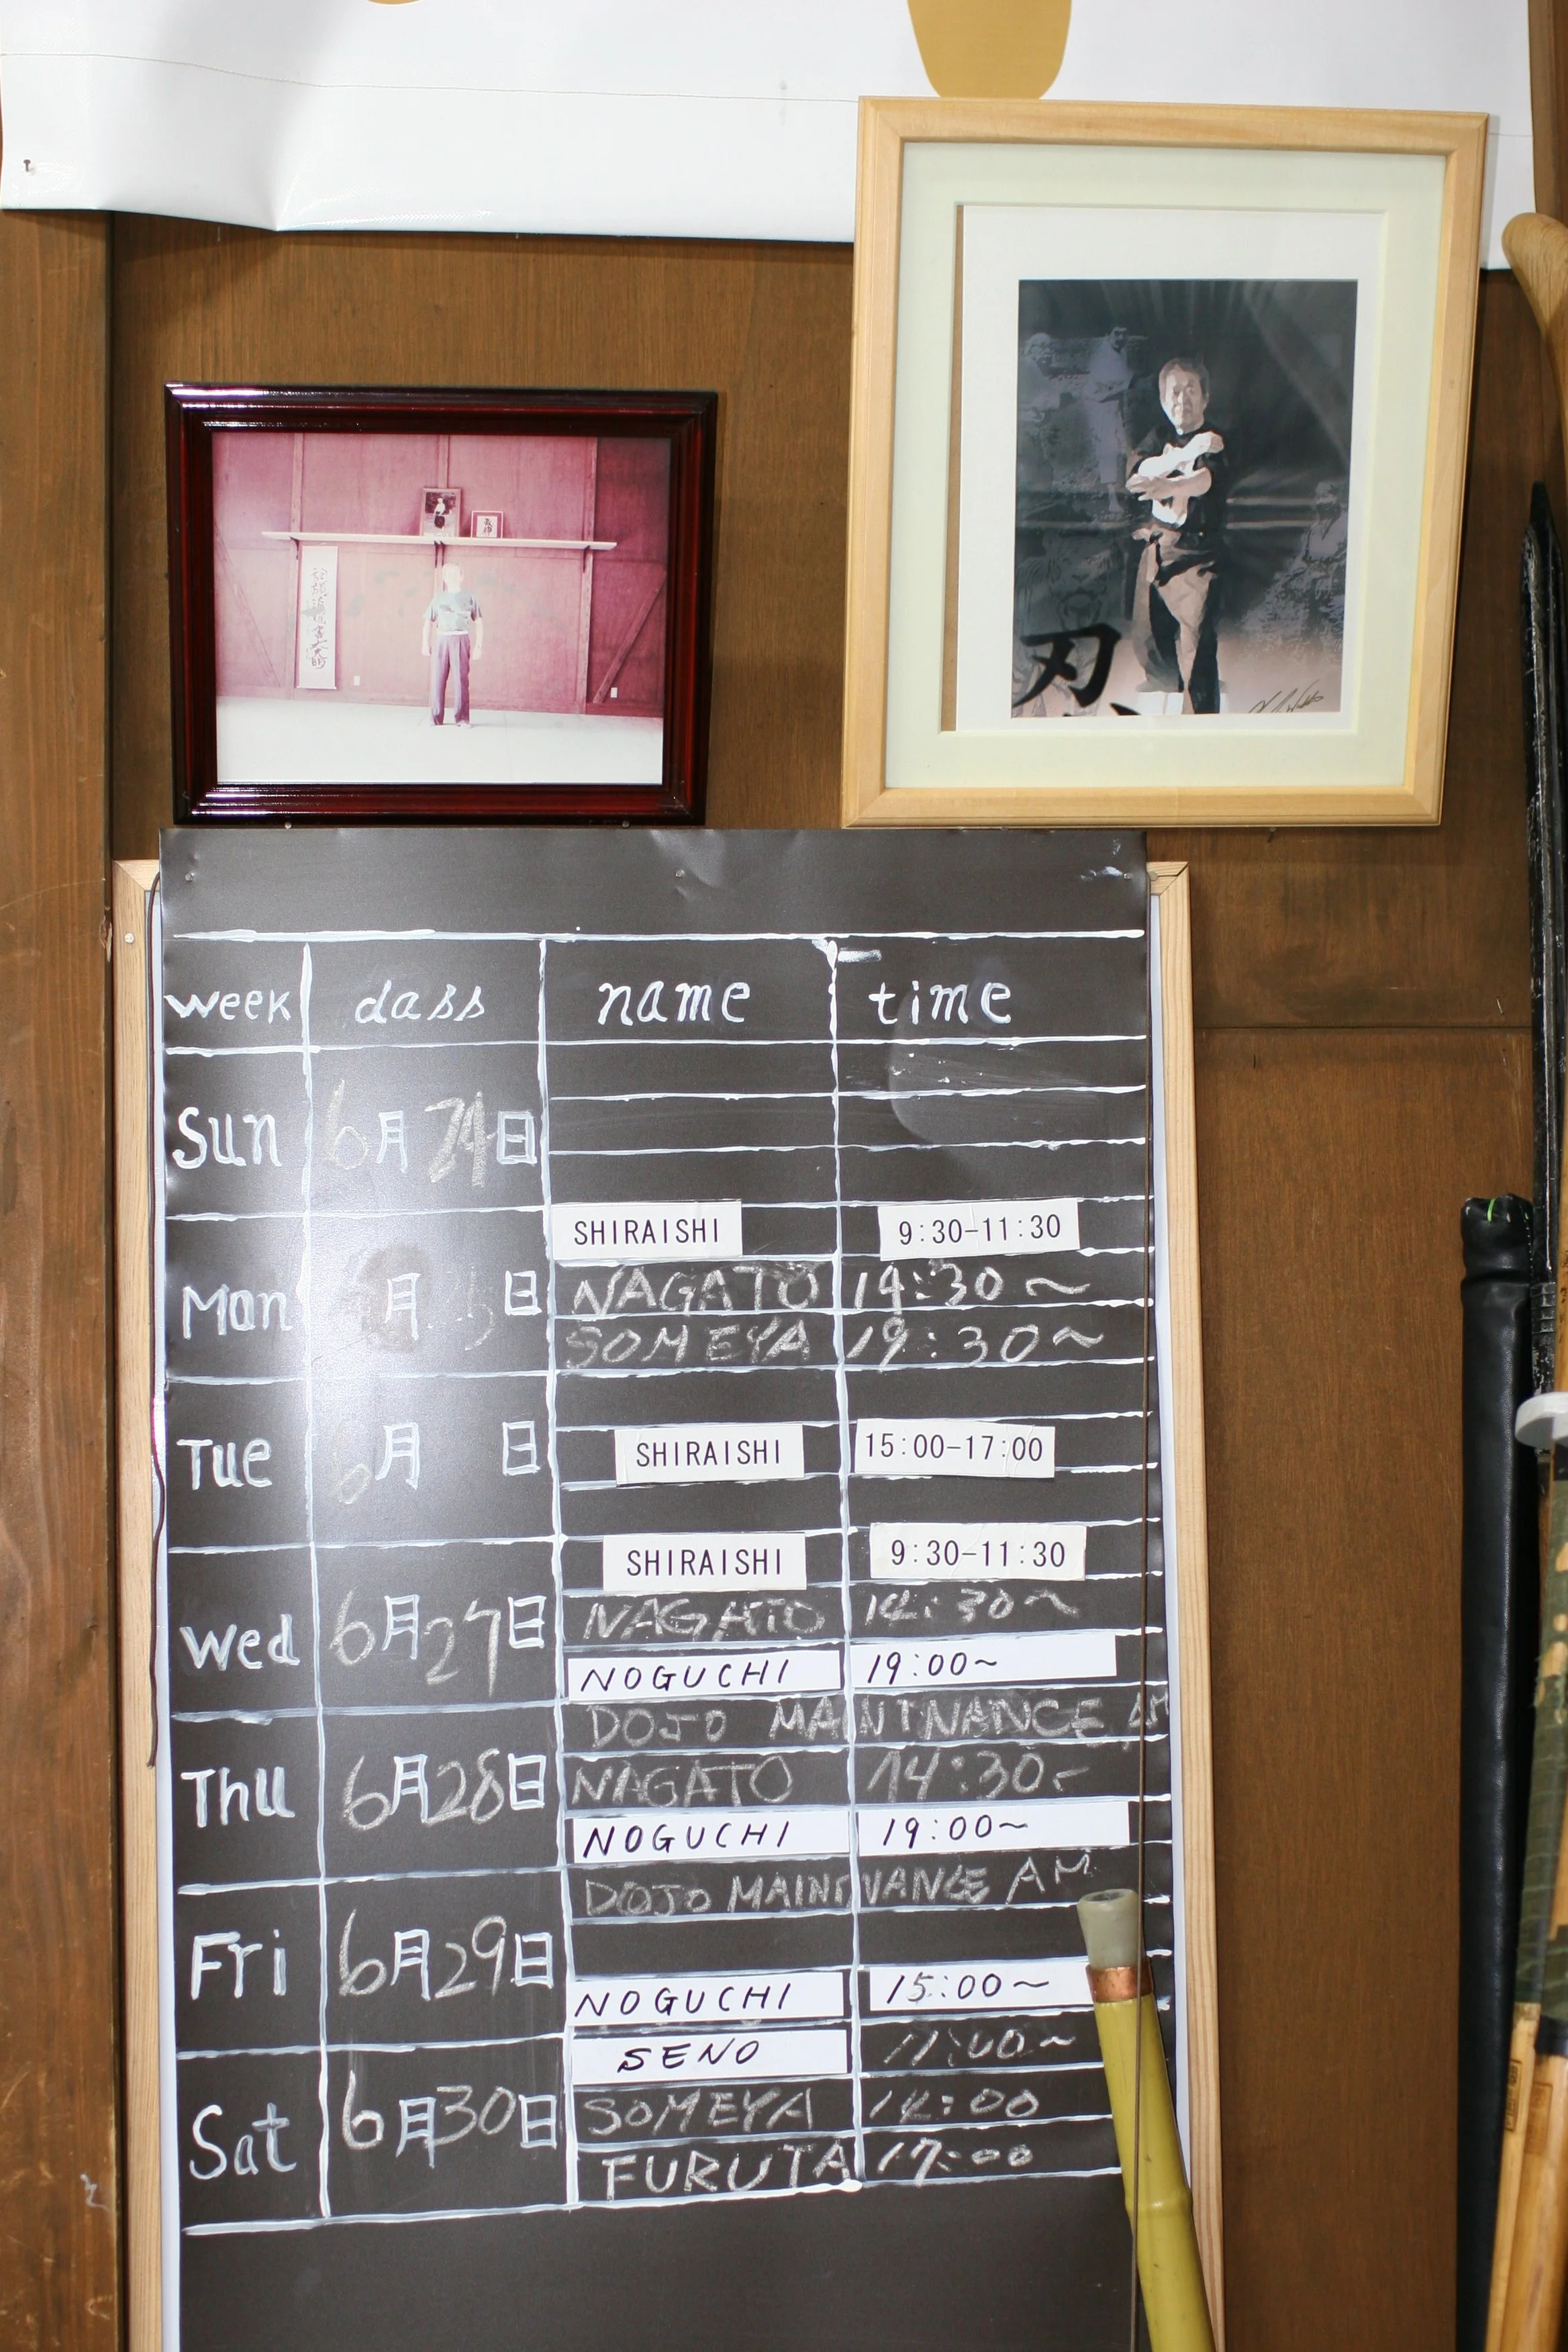 刃
week class name time
Sun 6月24日
SHIRAISHI 9:30-11:30
Mon 月 日 NAGATO 14:30~
SOMEYA 19:30~
Tue 6月 日 SHIRAISHI 15:00-17:00
SHIRAISHI 9:30-11:30
Wed 6月27日 NAGATO 14:30~
NOGUCHI 19:00~
DOJO MAINTNANCE AM
Thu 6月28日 NAGATO 14:30~
NOGUCHI 19:00~
DOJO MAINTNANCE AM
Fri 6月29日
NOGUCHI 15:00~
SENO 11:00~
Sat 6月30日 SOMEYA 14:00
FURUTA 17:00